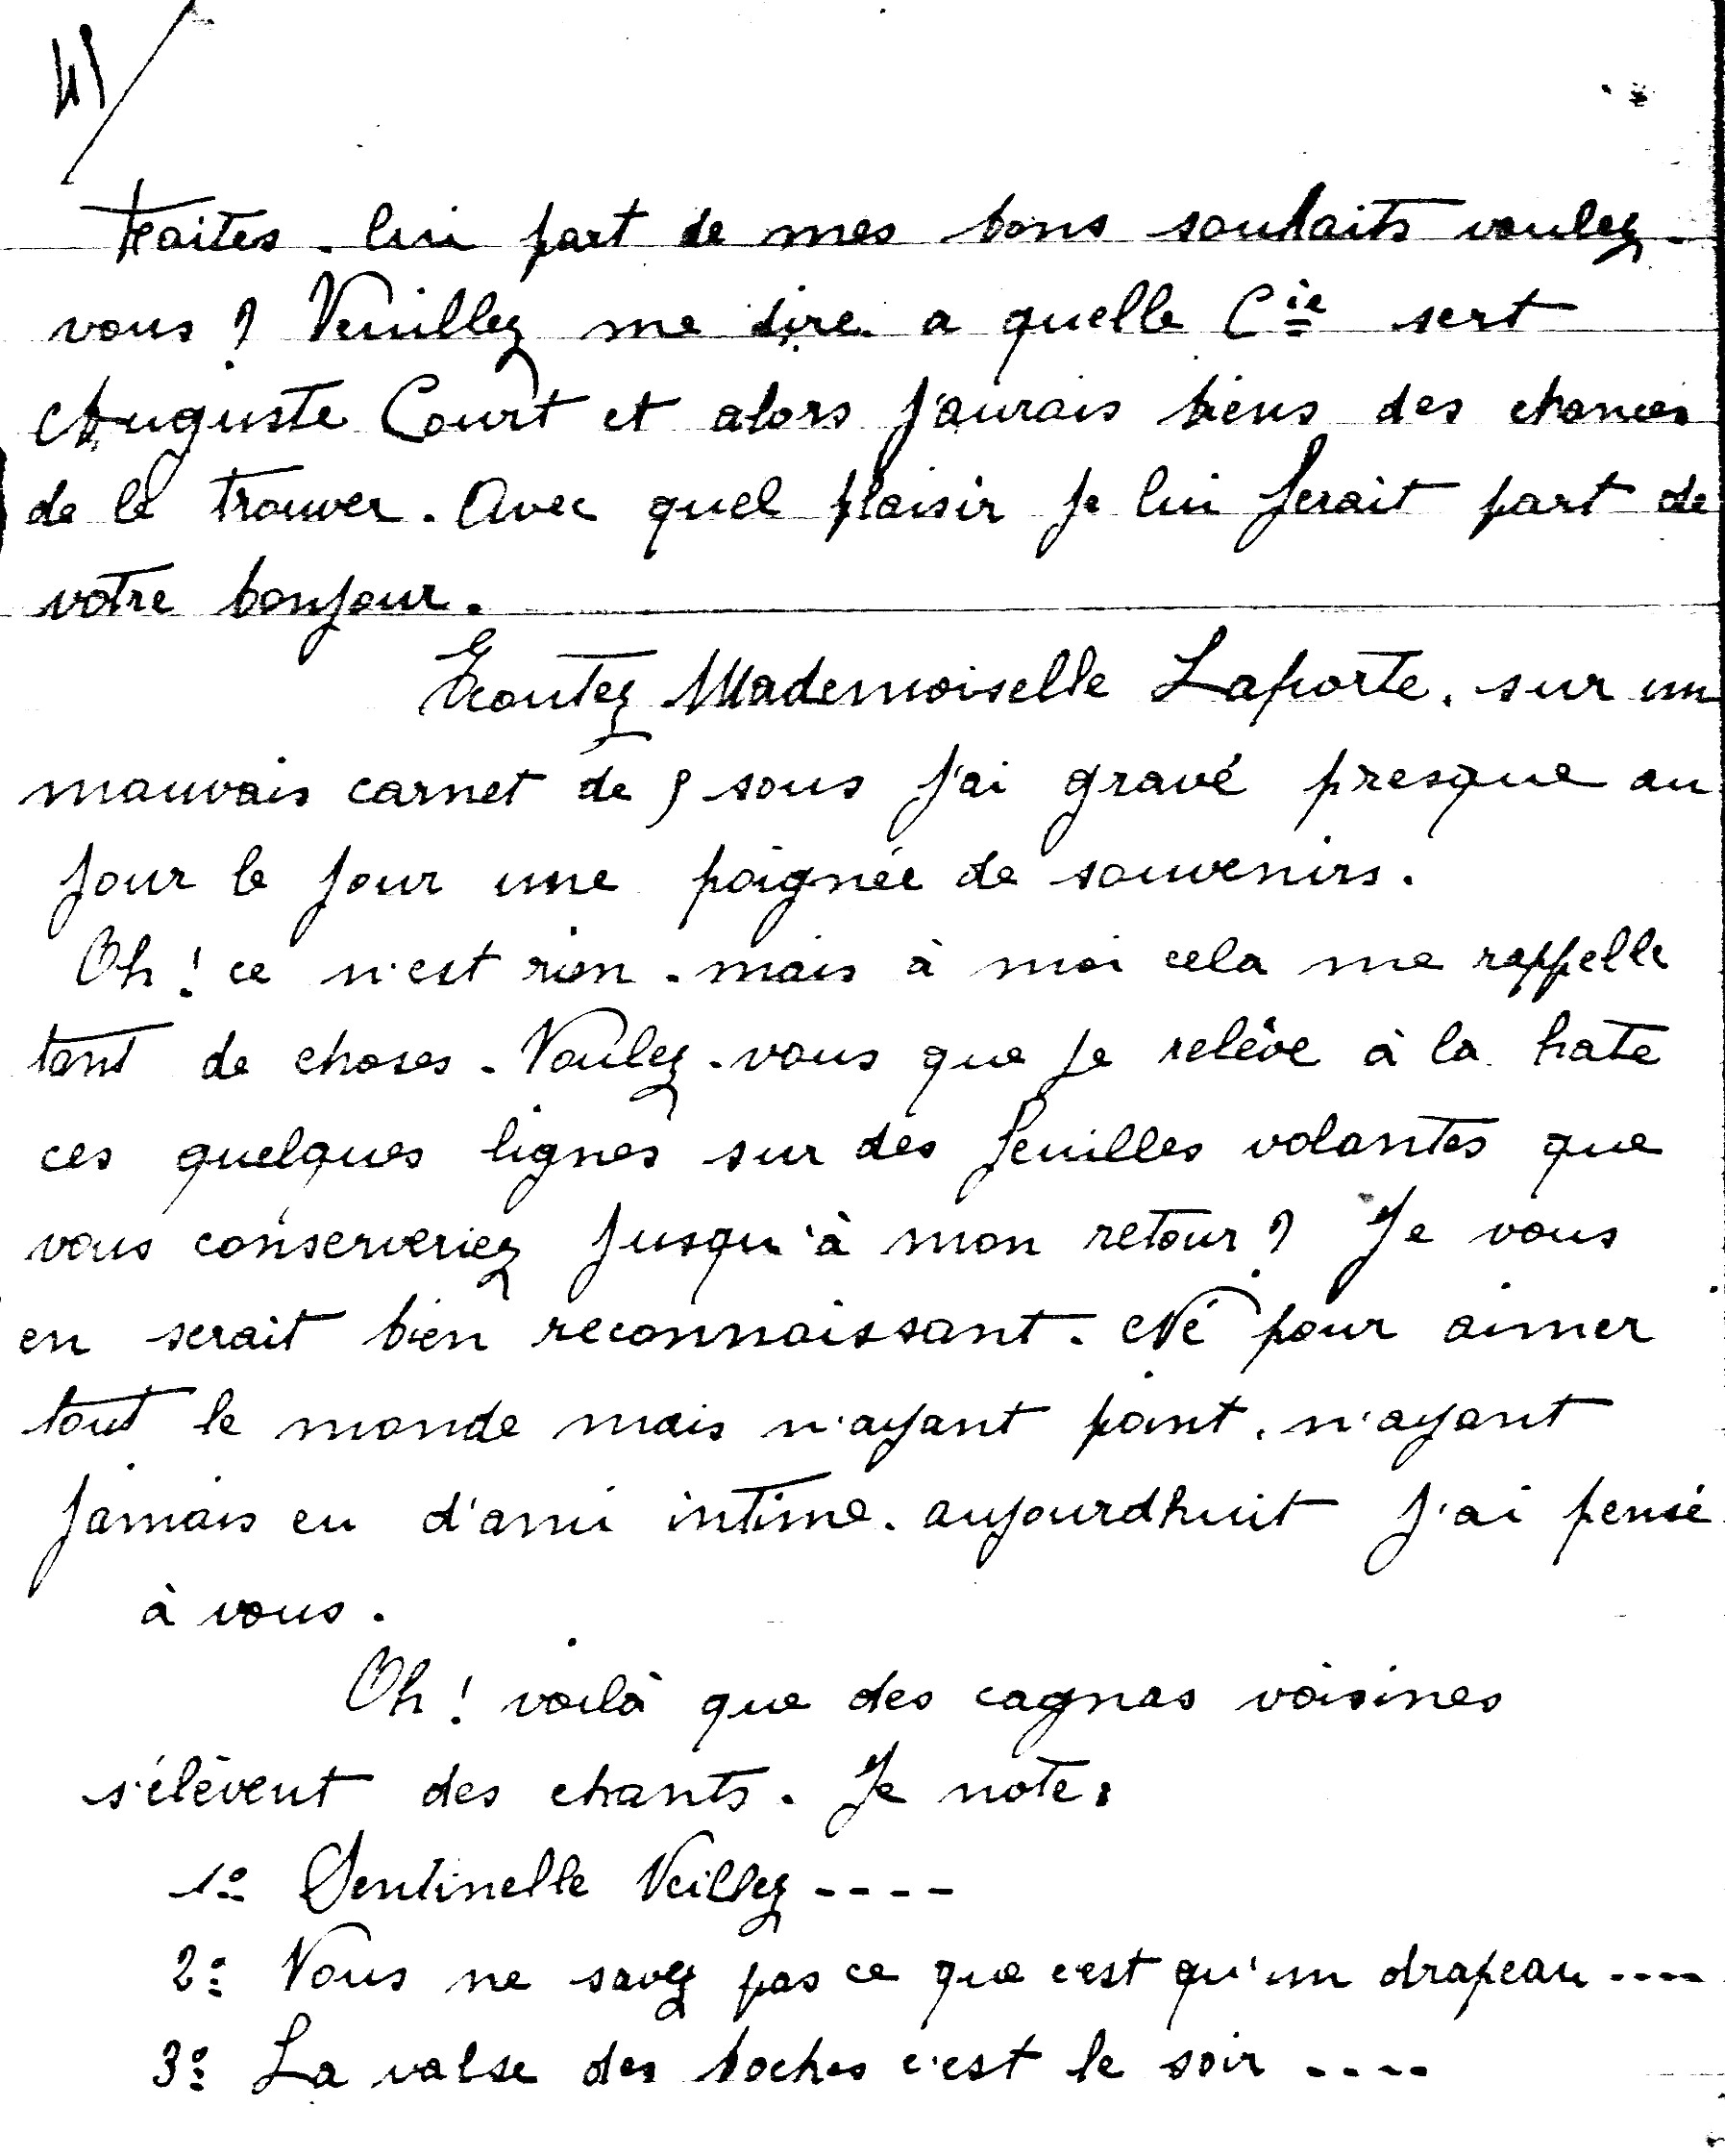 Faites-lui part de mes bons souhaits voulez-
vous ? Veuillez me dire a quelle Cie sert
Auguste Court et alors j'aurais biens des chances
de le trouver. Avec quel plaisir je lui ferait part de
votre bonjour.
Ecoutez Mademoiselle Laporte, sur un
mauvais carnet de sous j'ai gravé presque au
jour le jour une poignée de souvenirs.
Oh ! ce n'est rien. mais à moi cela me rappelle
tant de choses. Voulez-vous que je relève à la hate
ces quelques lignes sur des feuilles volantes que
vous conserveriez jusqu'à mon retour ? Je vous
en serait bien reconnaissant. Né pour aimer
tout le monde mais n'ayant point, n'ayant
jamais eu d'ami intime. aujourdhuit j'ai pensé
à vous.
Oh ! voilà que des cagnas voisines
s'élèvent des chants. Je note :
1o Sentinelle Veillez ----
2o Vous ne savez pas ce que c'est qu'un drapeau ----
3o La valse des boches c'est le soir ----